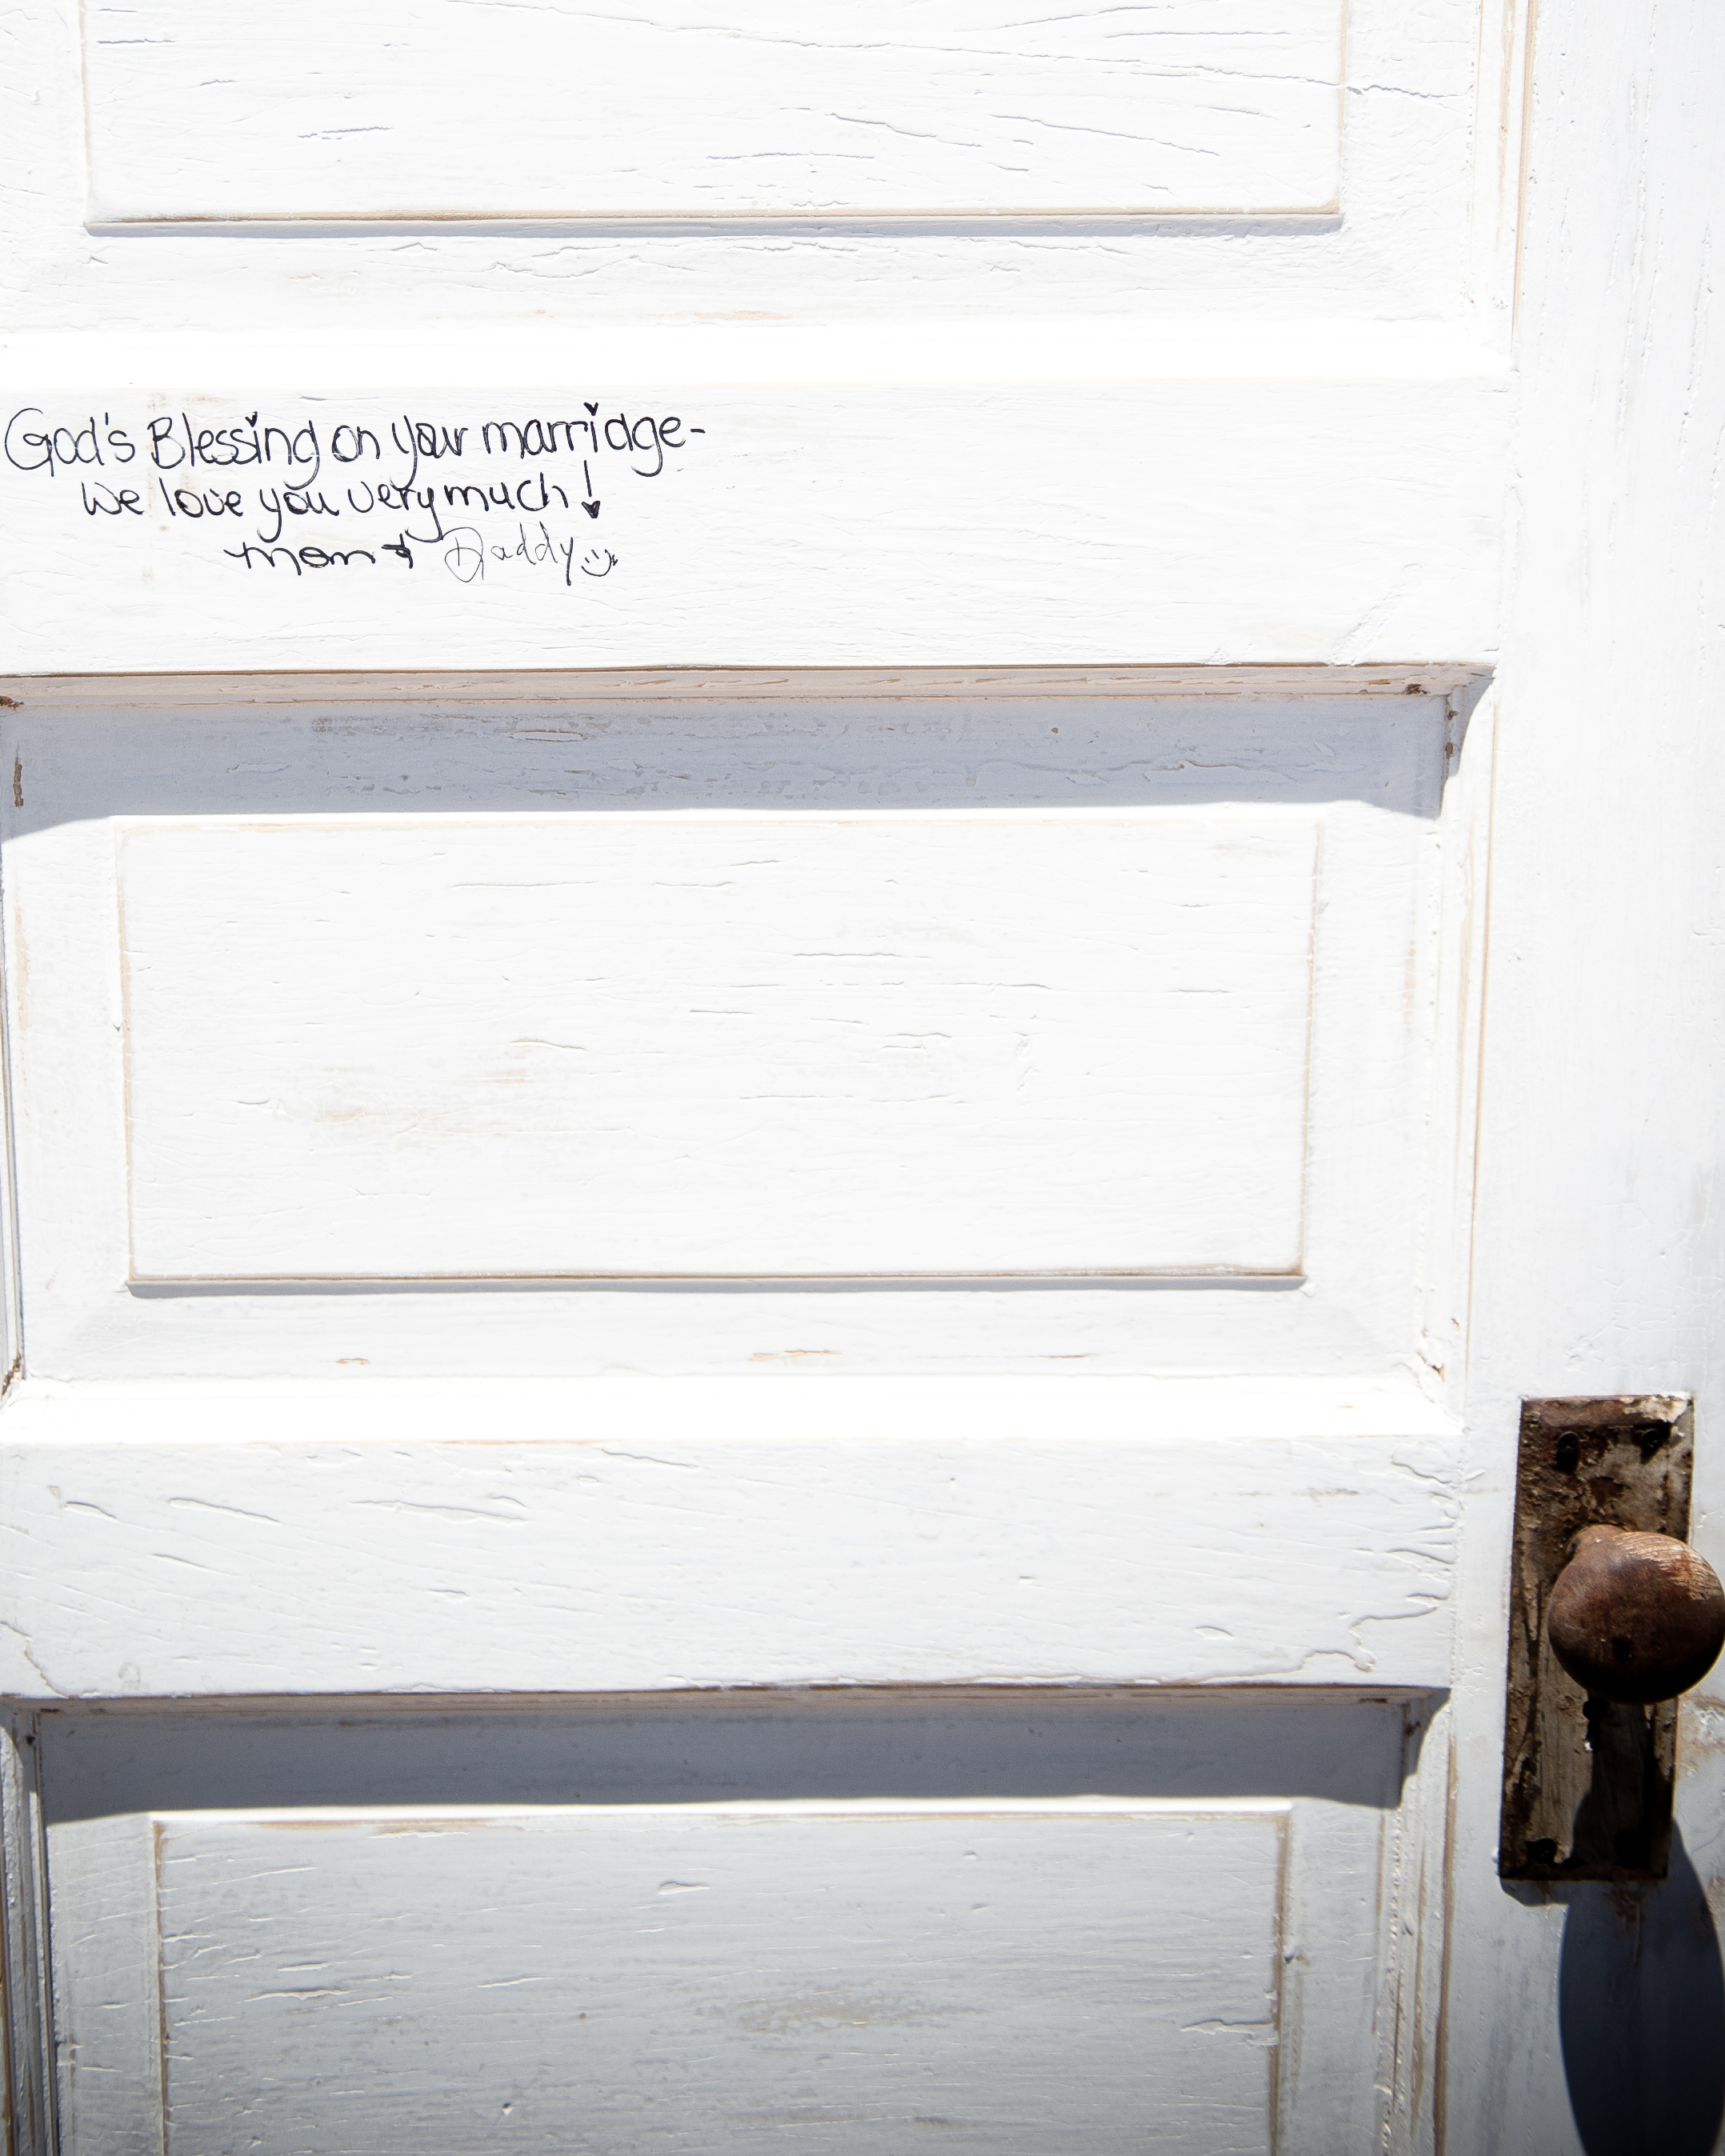 God's Blessing on your marriage-
We love you very much!
mom & Daddy